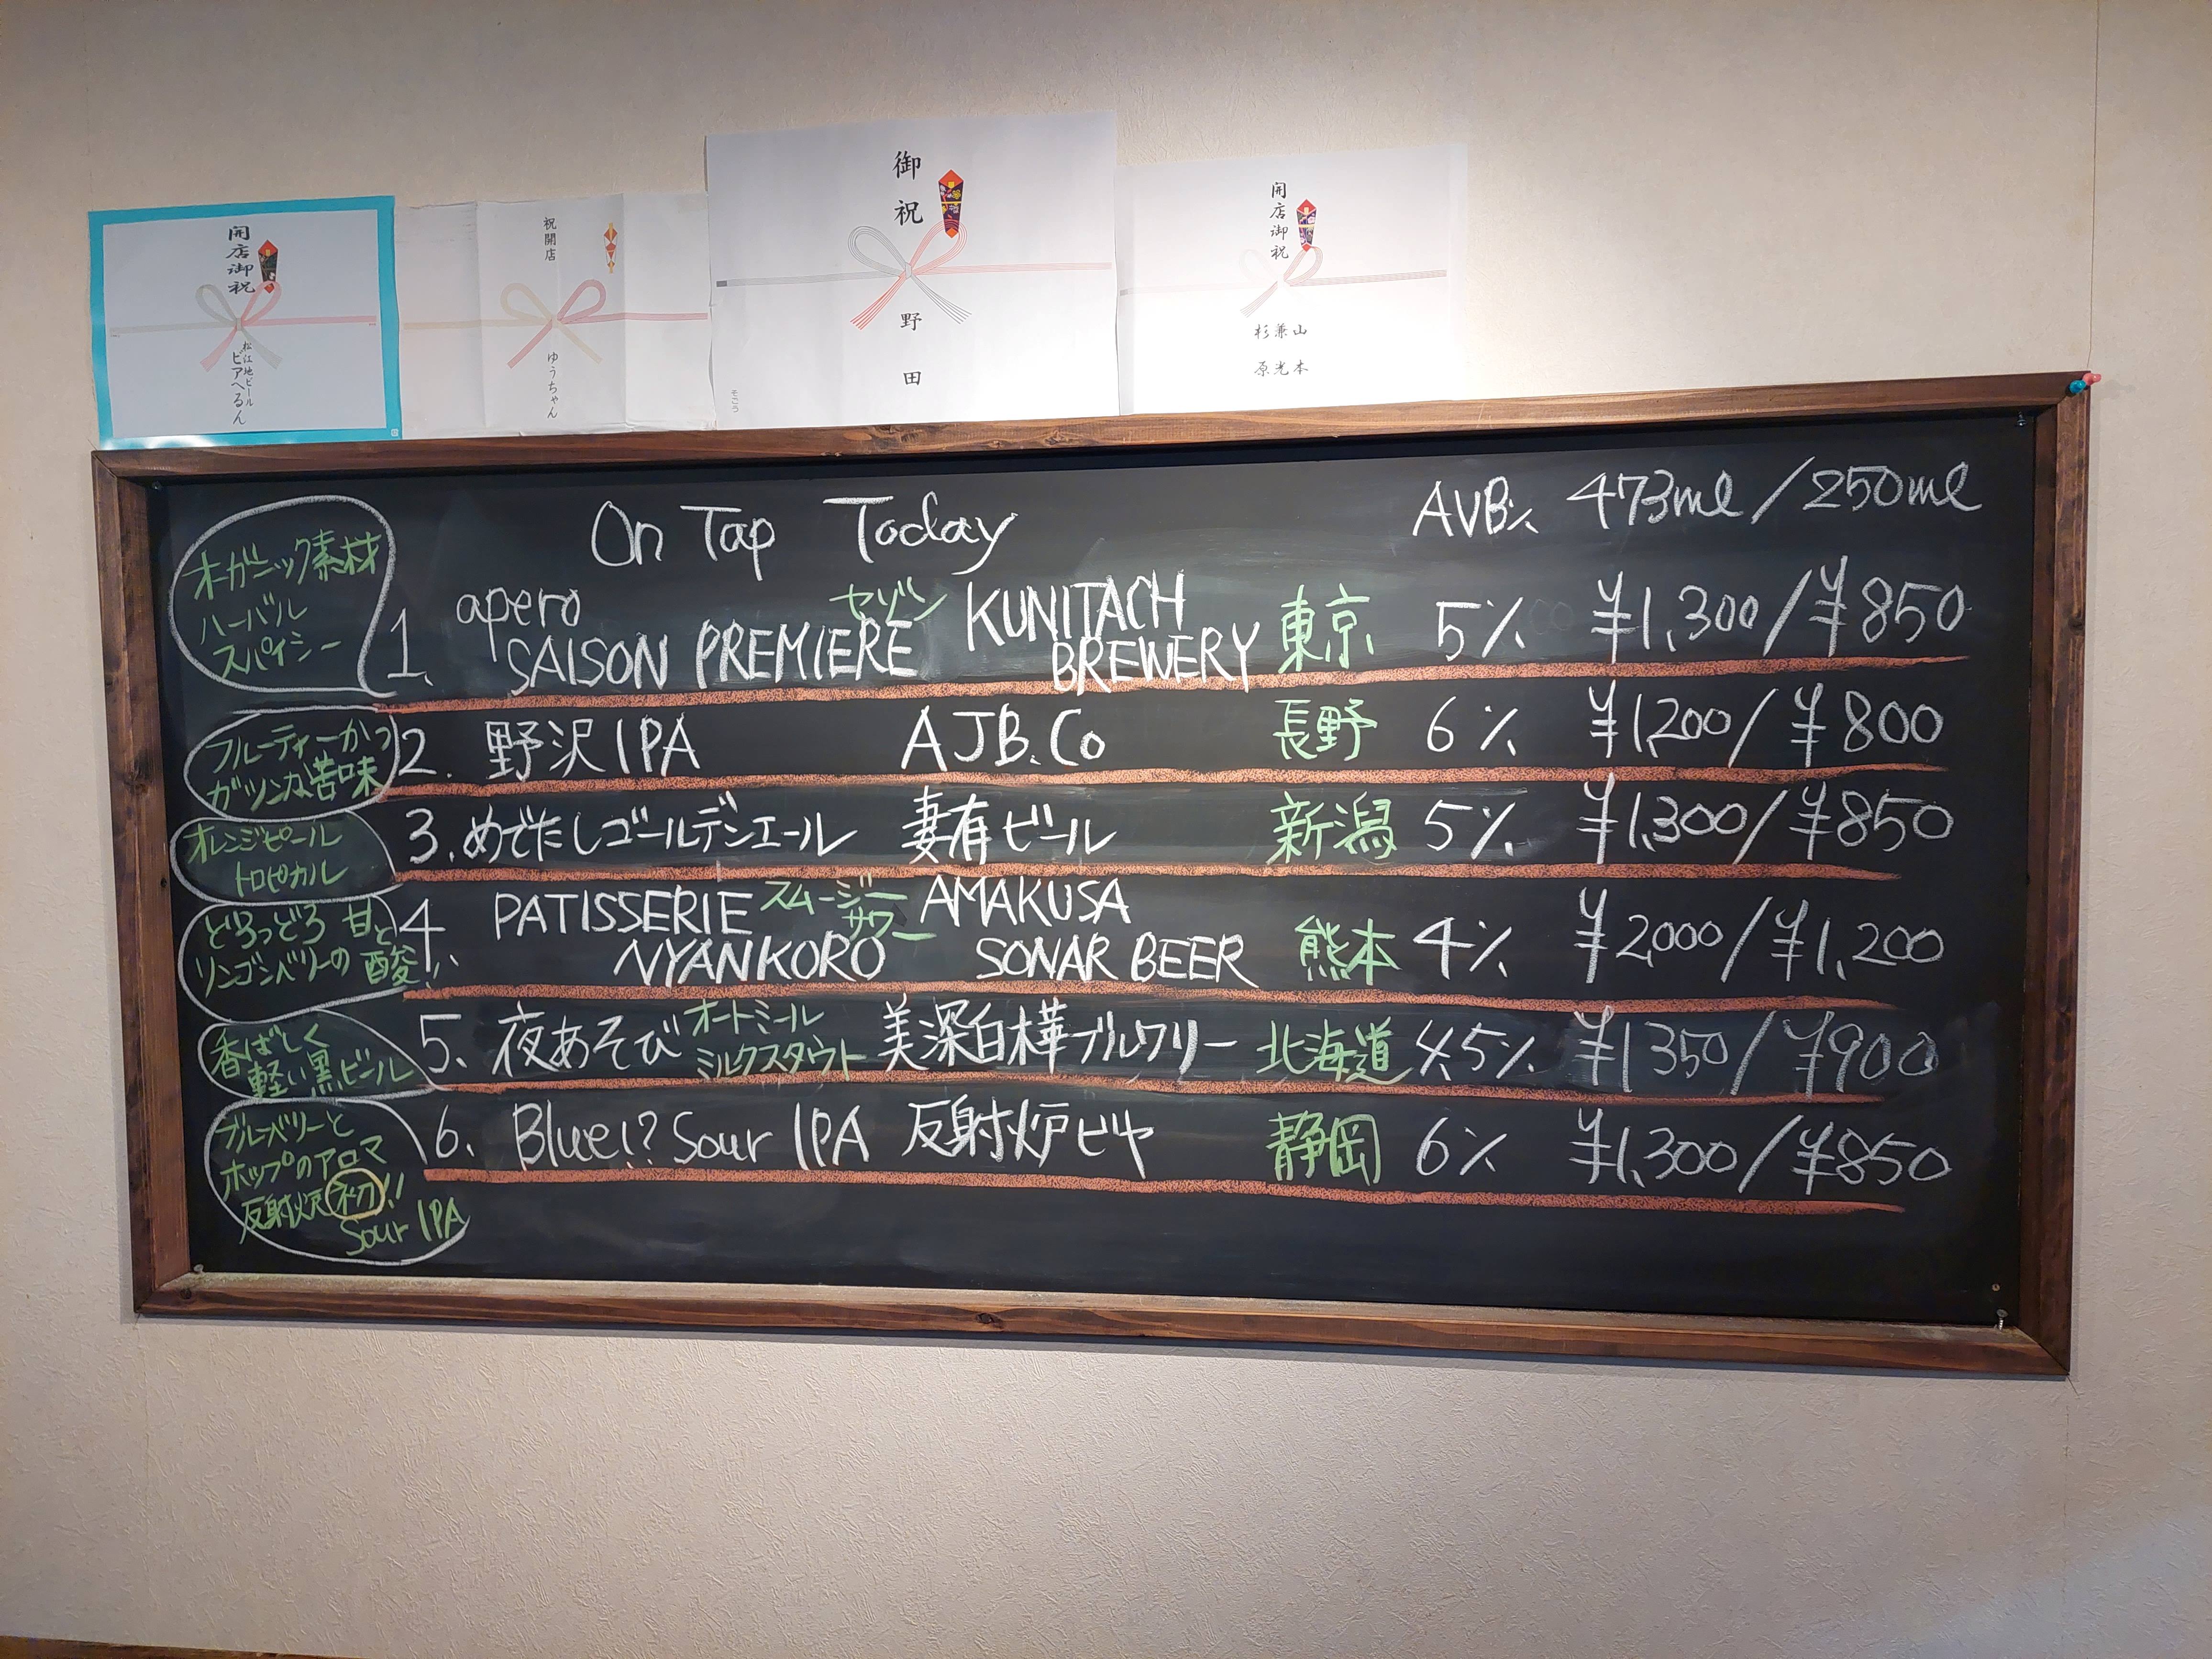 開店御祝
松江地ビール
ビアへるん
祝開店
ゆうちゃん
御祝
野田
そごう
開店御祝
杉兼山
原光本
On Tap Today AVB% 473ml / 250ml
オーガニック素材
ハーバル
スパイシー
1. apero セゾン KUNITACH
SAISON PREMIERE BREWERY 東京 5% ¥1,300 / ¥850
フルーティーかつ
ガツンな苦味
2. 野沢IPA AJB.Co 長野 6% ¥1,200 / ¥800
オレンジピール
トロピカル
3. めでたしゴールデンエール 妻有ビール 新潟 5% ¥1,300 / ¥850
どろっどろ 甘と
リンゴンベリーの酸!
4. PATISSERIE スムージー AMAKUSA
サワー
NYANKORO SONAR BEER 熊本 4% ¥2,000 / ¥1,200
香ばしく
軽い黒ビール
5. 夜あそび オートミール
ミルクスタウト 美深白樺ブルワリー 北海道 4.5% ¥1350 / ¥900
ブルーベリーと
ホップのアロマ
反射炉初!!
Sour IPA
6. Blue!? Sour IPA 反射炉ビヤ 静岡 6% ¥1,300 / ¥850